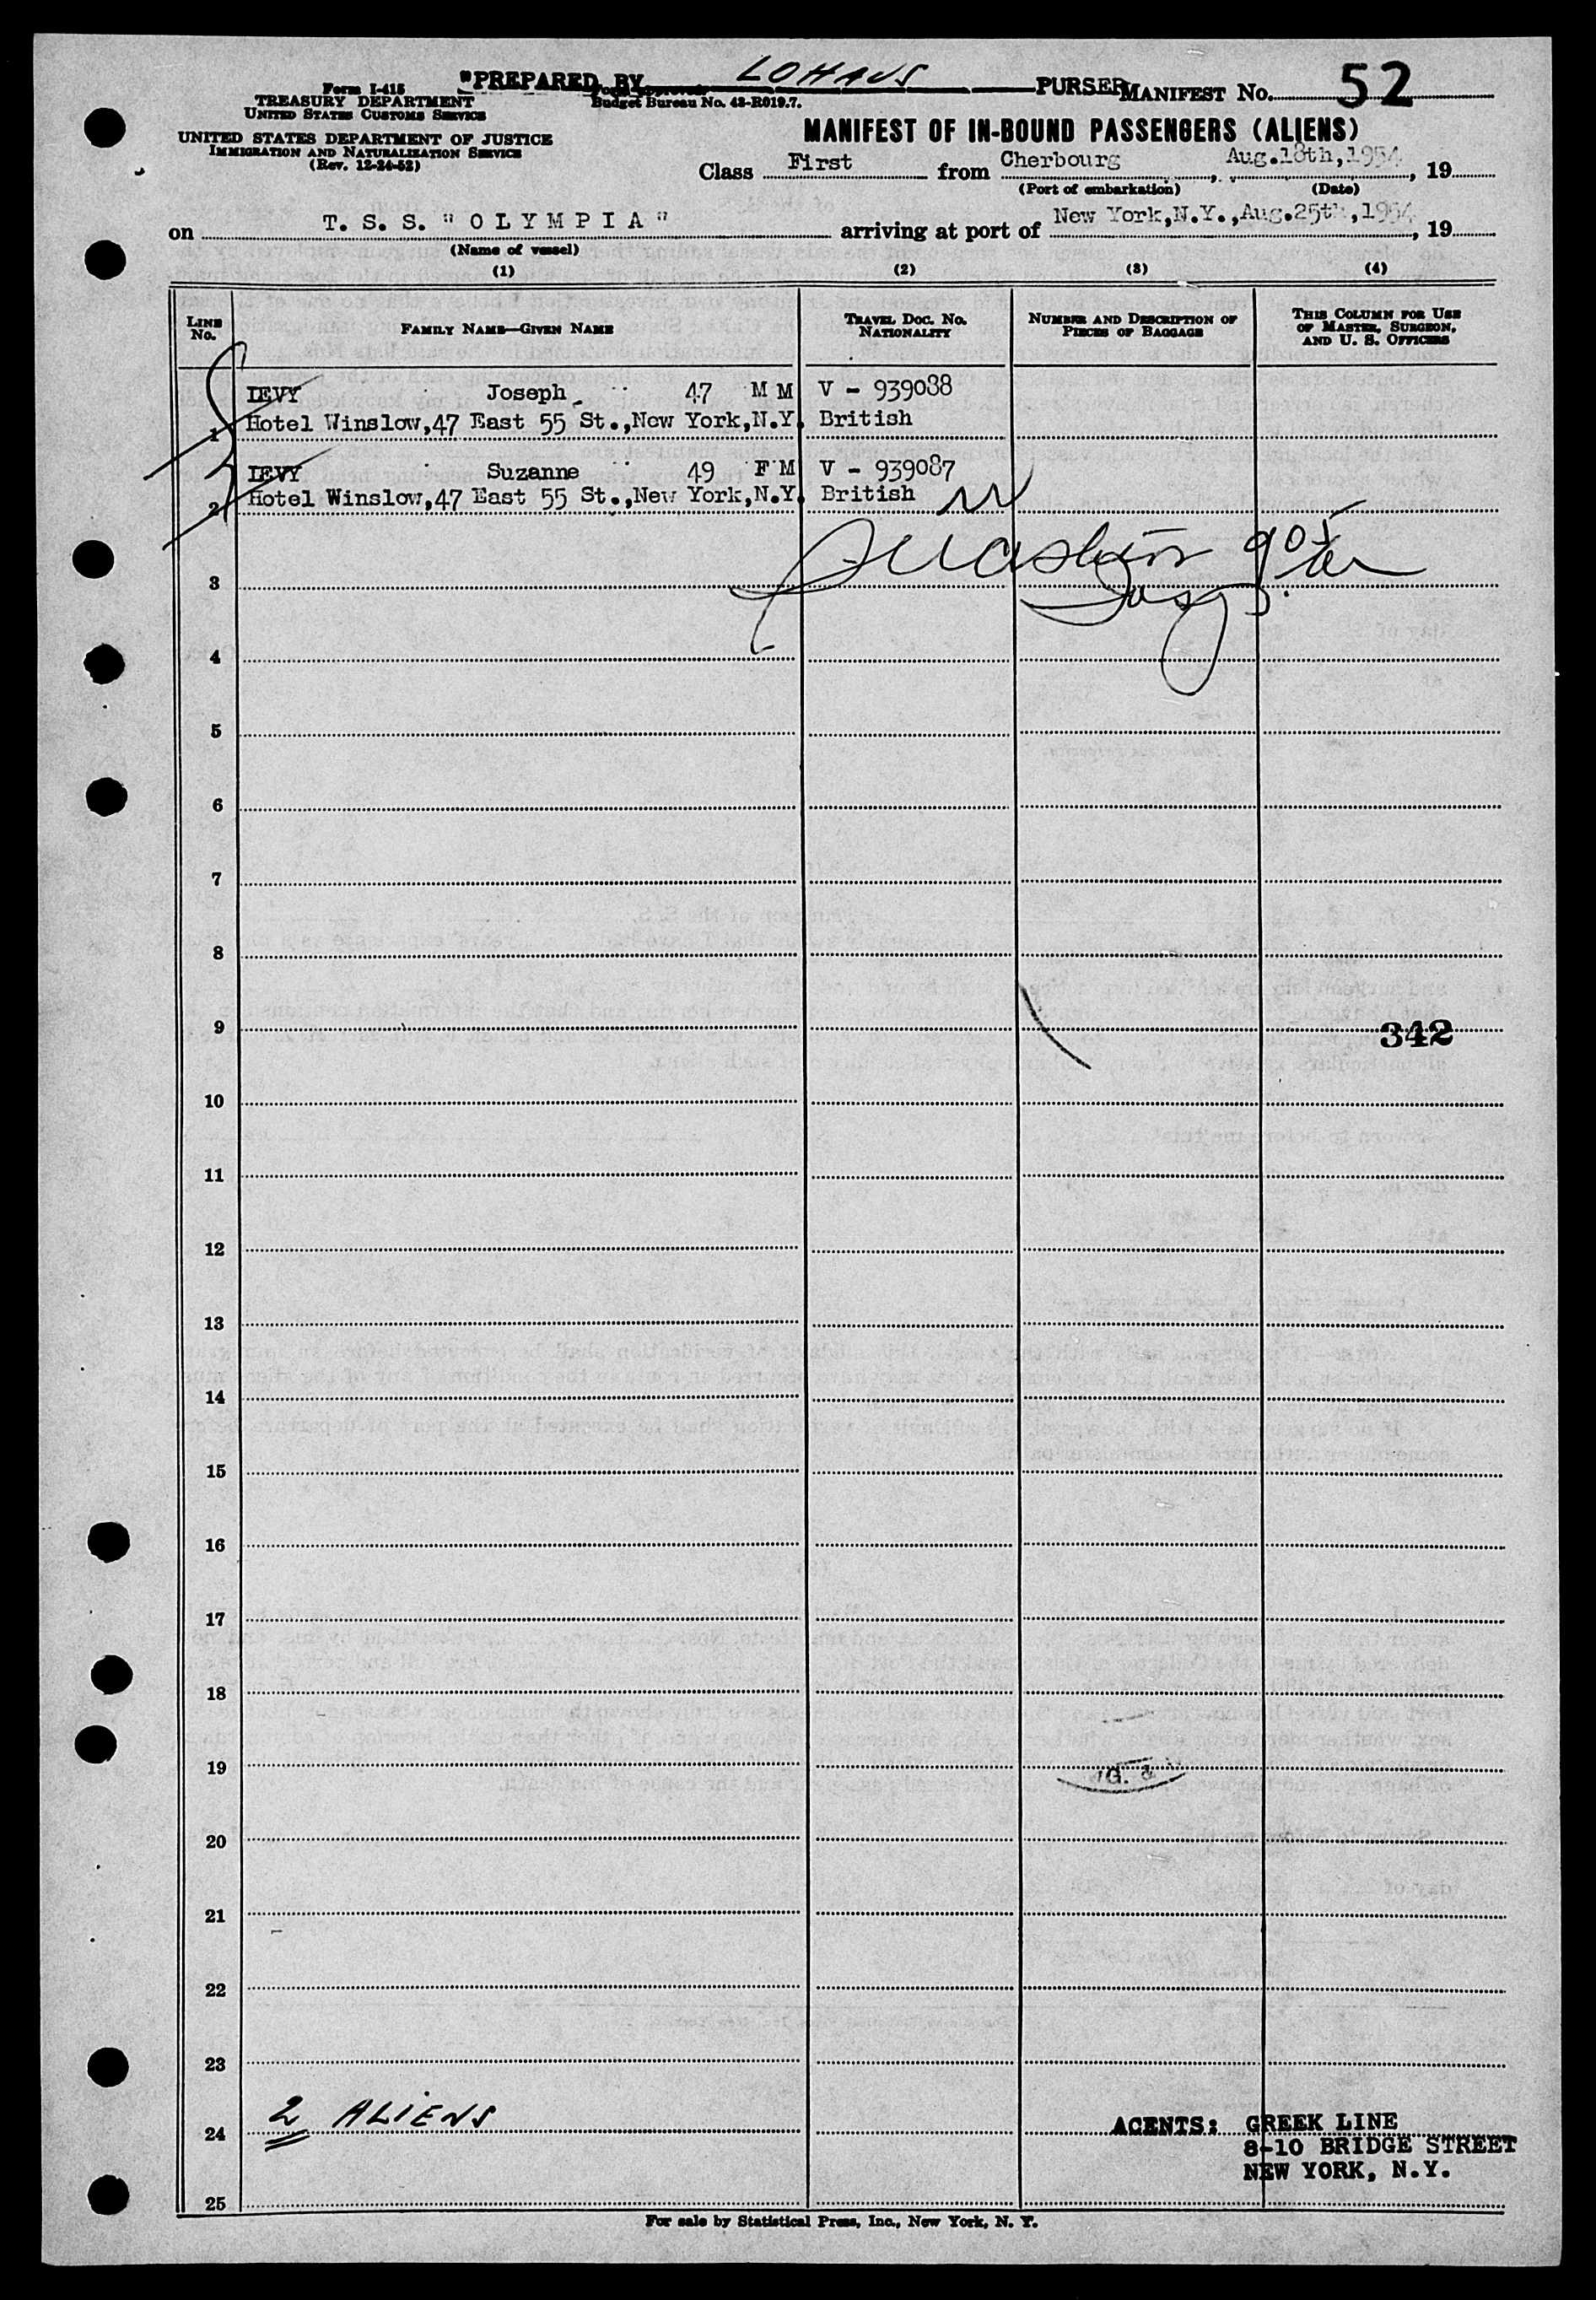 "PREPARED BY LOHAUS PURSER
Form I-415
TREASURY DEPARTMENT
UNITED STATES CUSTOMS SERVICE
Form approved.
Budget Bureau No. 43-R019.7.
MANIFEST No. 52
UNITED STATES DEPARTMENT OF JUSTICE
IMMIGRATION AND NATURALIZATION SERVICE
(Rev. 12-24-52)
MANIFEST OF IN-BOUND PASSENGERS (ALIENS)
Class First from Cherbourg, Aug.18th,1954, 19
(Port of embarkation) (Date)
on T. S. S. "OLYMPIA" arriving at port of New York,N.Y.,Aug.25th,1954, 19
(Name of vessel)
(1) (2) (3) (4)
LINE No. FAMILY NAME—GIVEN NAME TRAVEL DOC. NO. NATIONALITY NUMBER AND DESCRIPTION OF PIECES OF BAGGAGE THIS COLUMN FOR USE OF MASTER, SURGEON, AND U. S. OFFICERS
LEVY Joseph 47 M M V - 939088
1 Hotel Winslow,47 East 55 St.,New York,N.Y. British
LEVY Suzanne 49 F M V - 939087
2 Hotel Winslow,47 East 55 St.,New York,N.Y. British
3
4
5
6
7
8
9 342
10
11
12
13
14
15
16
17
18
19
20
21
22
23
24 2 ALIENS AGENTS: GREEK LINE
8-10 BRIDGE STREET
NEW YORK, N.Y.
25
For sale by Statistical Press, Inc., New York, N. Y.